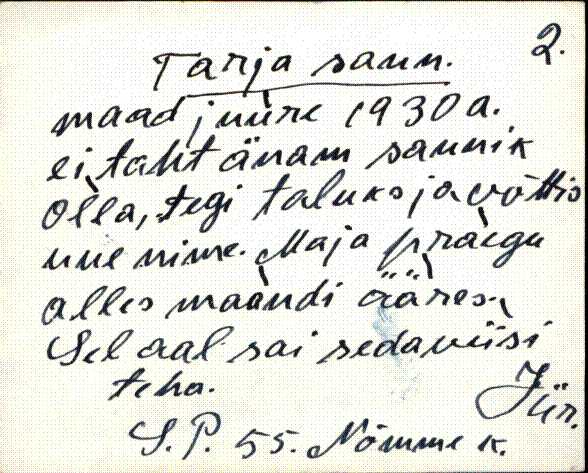 2.
Tarja saun.
maad juure 1930 a.
ei taht änam saunik
olla, tegi taluks ja võttis
uue nime. Maja praegu
alles maandi ääres.
Sel aal sai sedaviisi
teha.
Jür.
S.P. 55. Nõmme k.